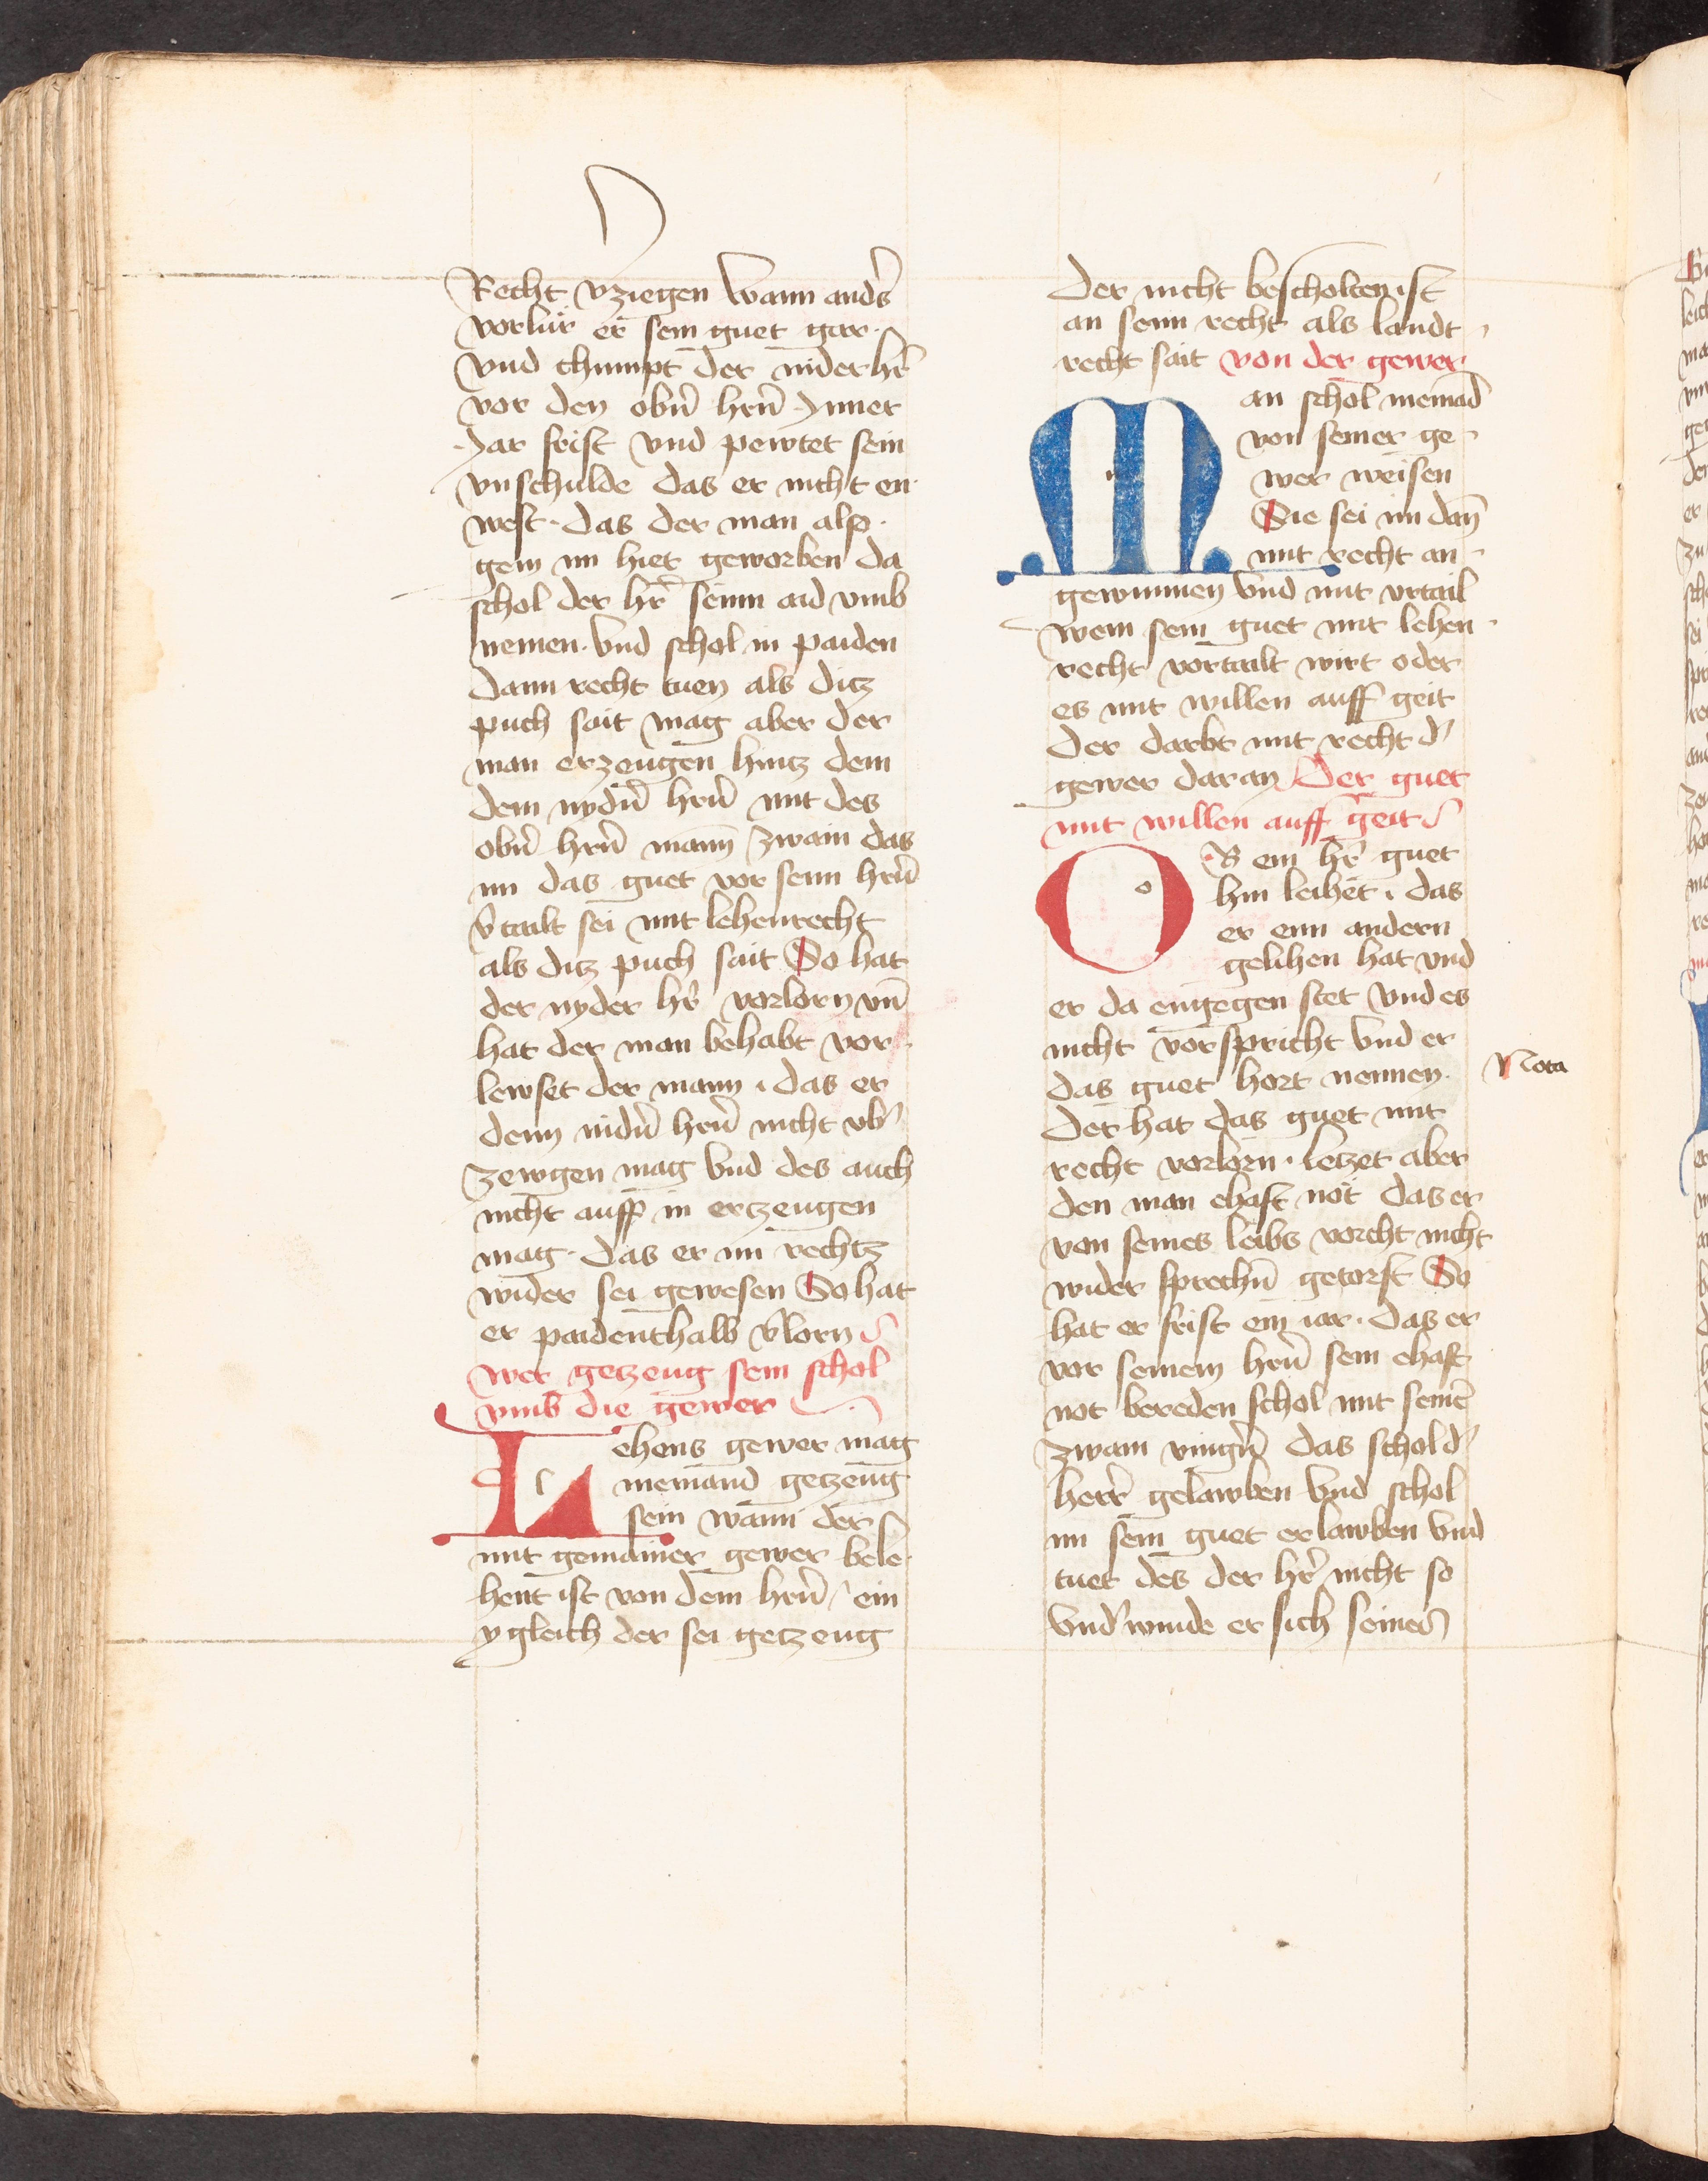 Recht vziegen wann anders̄
vorlür er sein guet gar·
vnd chumpt der nider hr̄
vor den obn̄ hrn̄ Inner
Jar frist vnd pewtet sein
vnschulde das er nicht en·
west· das der man also·
gein im hiet geworben da
schol der hr̄ seinn aid vmb
nemen· vnd schol in paiden
dann recht tuen als ditz
puch sait mag aber der
man erzeugen hintz dem
dem nydn̄ hrn̄ mit des
obn̄ hrn̄ mann̄ zwain das
im das guet vor seinn hrn̄
v̄tailt sei mit lehenrecht
als ditz puch sait So hat
der nyder hr̄ vorlorn vn̄
hat der man behabt vor·
lewset der mann · das er
denn nidn̄ hrn̄ nicht vb̄
zewgen mag vnd des auch
nicht auff in ertzeugen
mag· das er im rechtz
wider sei gewesen So hat
er paidenthalb v̄lorn
wer getzeug sein schol
vmb die gewer
L ehens gewer mag
niemand getzeug
sein wann der
mit gemainer gewer bele·
hent ist von dem hrn̄ / ein
ygleich der sei getzeug
der nicht bescholten ist
an seinn recht als landt -
recht sait von der gewer
M an schol niemād
von seiner ge -
wer weisen
Sie sei im dan̄
mit recht an -
gewunnen vnd mit vrtail
wem sein guet mit lehen -
recht vortailt wirt oder
es mit willen auff geit
der darbt mit recht d̄
gewer daran Der guet
mit willen auff geit
O B ein hr̄ guet
hin leihet · das
er einn andern
gelihen hat vnd
er da engegen stet vnd es
nicht vorspricht vnd er
das guet hort nennen·
Nota
Der hat das guet mit
recht vorlorn· letzet aber
den man ehaft not das er
von seines leibs vorcht nicht
wider sprechn̄ getorst So
hat er frist ein iar· das er
vor seinem hrn̄ sein ehaft
not bereden schol mit seinē
zwain vingn̄ das schol d̄
herr̄ gelawben vnd schol
im sein guet erlawben vnd
tuet des der hr̄ nicht so
vnd̄winde er sich seines